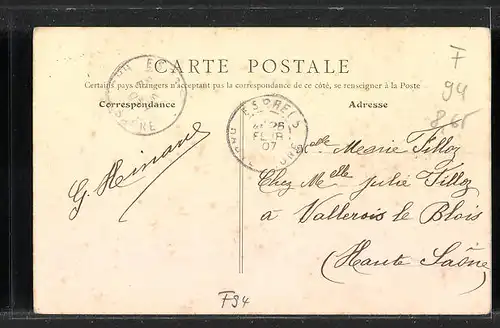 CARTE POSTALE
Certains pays étrangers n'acceptant pas la correspondance de ce côté, se renseigner à la Poste
Correspondance
Adresse
F
94
8,65
ESPRELS
26
07
Melle Marie Filloz
Chez Melle Julie Filloz
à Vallerois le Blois
(Haute Saône)
G.
F94